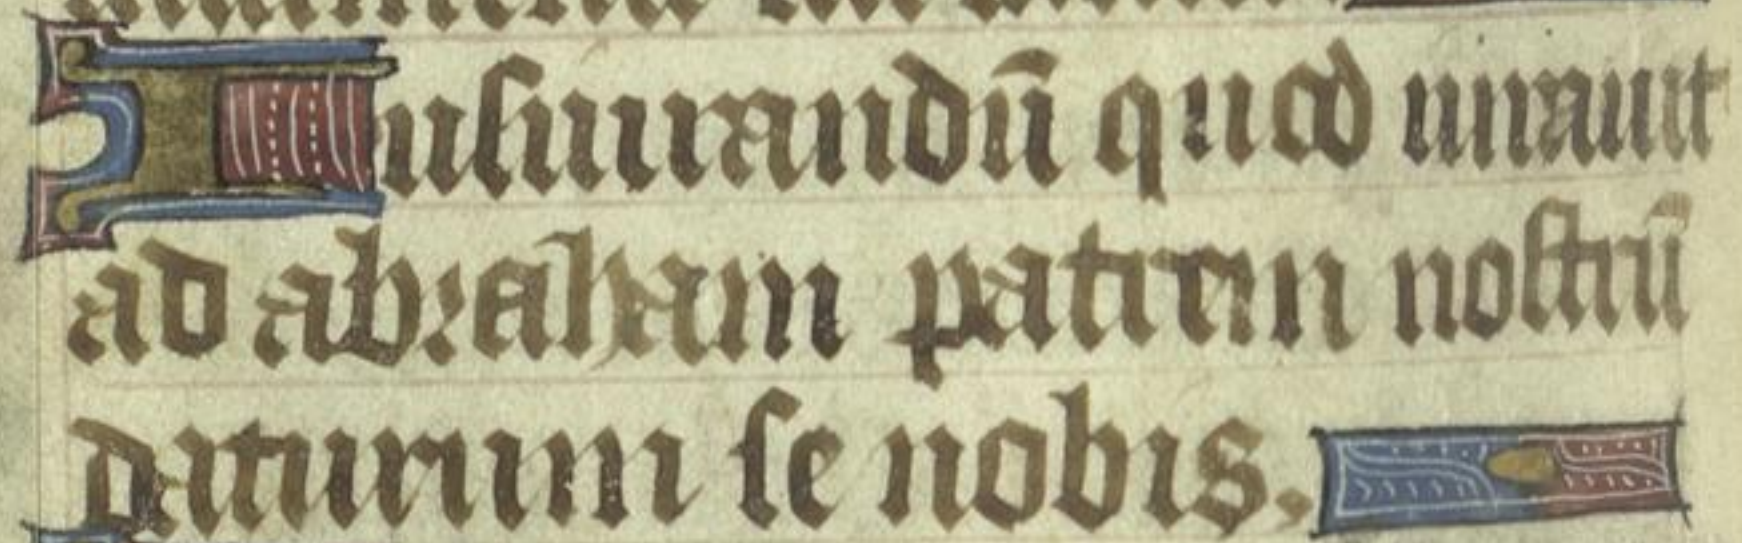 Iusiurandū quod iurauit
ad abraham patrem nostrū
daturum se nobis.